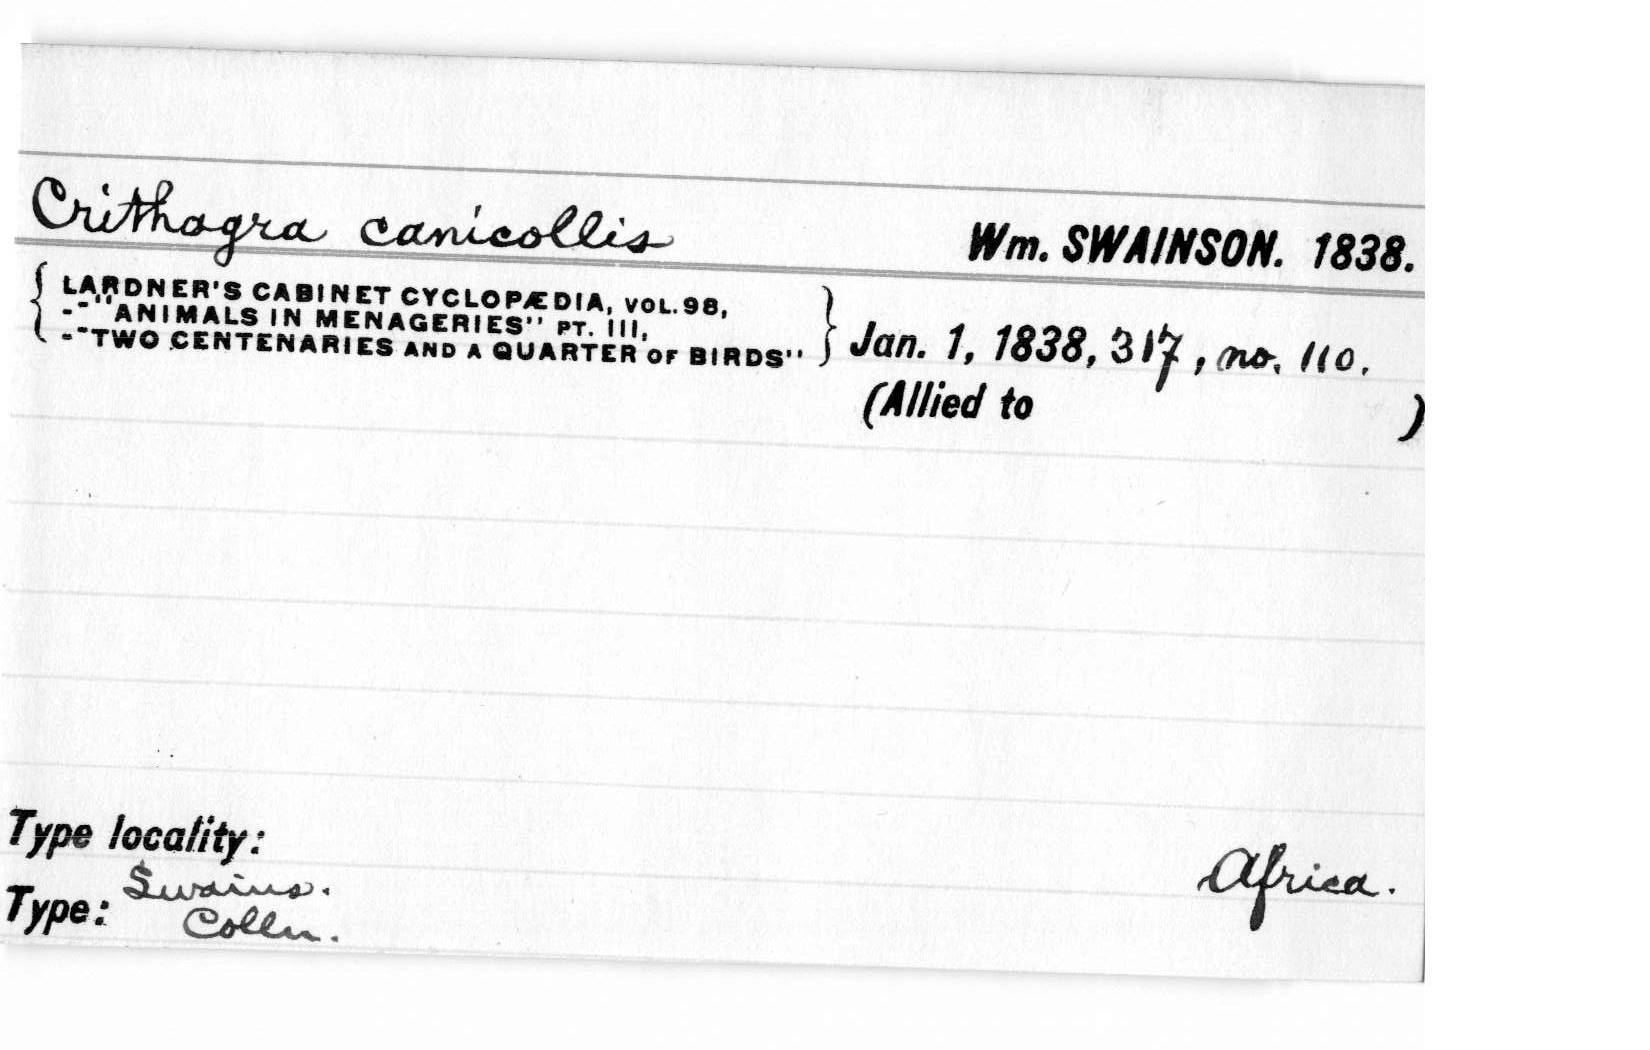 Crithagra canicollis Wm. SWAINSON. 1838.
LARDNER'S CABINET CYCLOPÆDIA, VOL. 98,
-"ANIMALS IN MENAGERIES" PT. III,
-"TWO CENTENARIES AND A QUARTER OF BIRDS" Jan. 1, 1838, 317, no. 110.
(Allied to )
Type locality: Africa.
Type: Swains.
Colln.